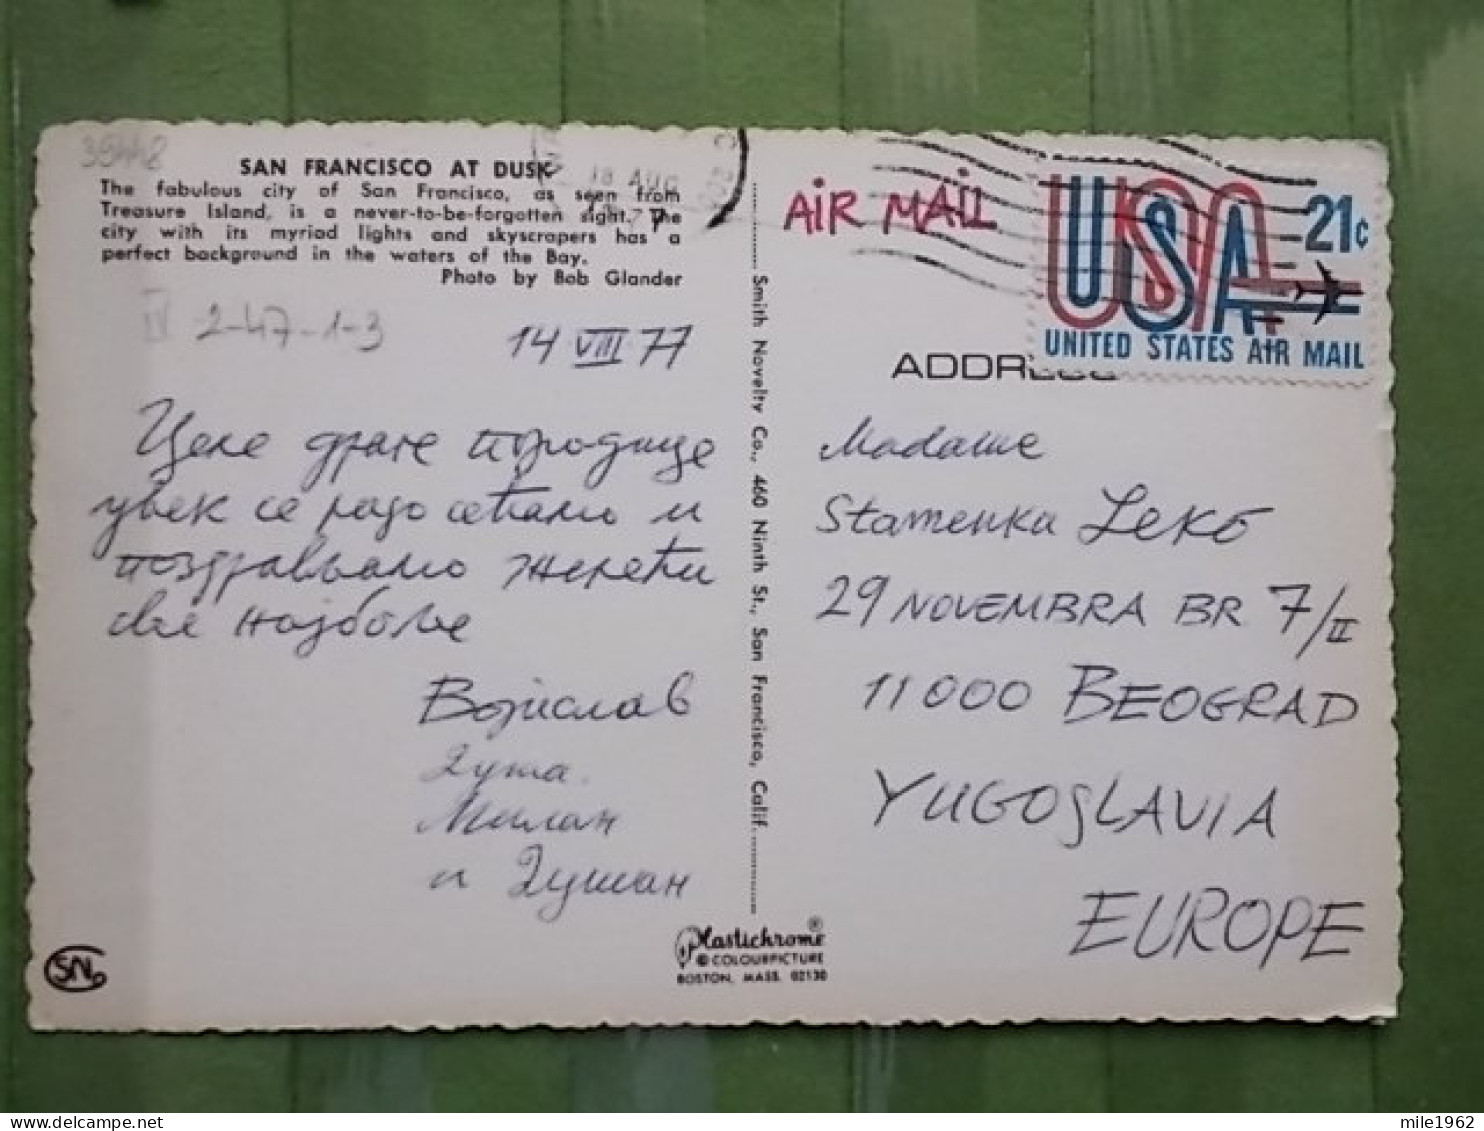 35442
SAN FRANCISCO AT DUSK
The fabulous city of San Francisco, as seen from
Treasure Island, is a never-to-be-forgotten sight. The
city with its myriad lights and skyscrapers has a
perfect background in the waters of the Bay.
Photo by Bob Glander
IV 2-47-1-3
14 VIII 77
Целе драге породице
увек се радо сећамо и
поздрављамо желећи
све најбоље
Војислав
Душа
Милан
и Душан
SN
Smith Novelty Co., 460 Ninth St., San Francisco, Calif.
Plastichrome®
© COLOURPICTURE
BOSTON, MASS. 02130
18 AUG
AiR MAiL
USA 21c
UNITED STATES AIR MAIL
ADDRESS
Madame
Stamenka Leko
29 NOVEMBRA BR 7/II
11000 BEOGRAD
YUGOSLAVIA
EUROPE
mile1962